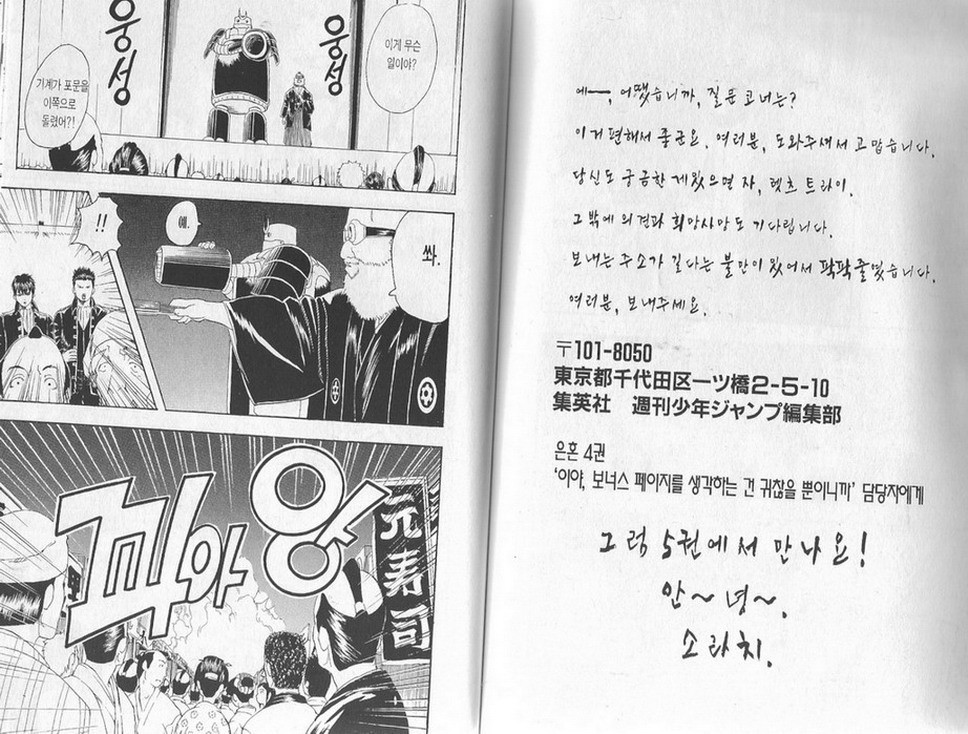 웅성
웅성
이게 무슨
일이야?
기계가 포문을
이쪽으로
돌렸어?!
쏴.
예.
!!
끼아앙
元寿司
예—, 어땠습니까, 질문 코너는?
이거 편해서 좋군요. 여러분, 도와주셔서 고맙습니다.
당신도 궁금한 게 있으면 자, 렛츠 트라이.
그 밖에 의견과 희망사항도 기다립니다.
보내는 주소가 길다는 불만이 있어서 팍팍 줄였습니다.
여러분, 보내주세요.
〒101-8050
東京都千代田区一ツ橋2-5-10
集英社 週刊少年ジャンプ編集部
은혼 4권
'이야, 보너스 페이지를 생각하는 건 귀찮을 뿐이니까' 담당자에게
그럼 5권에서 만나요!
안~녕~.
소라치.